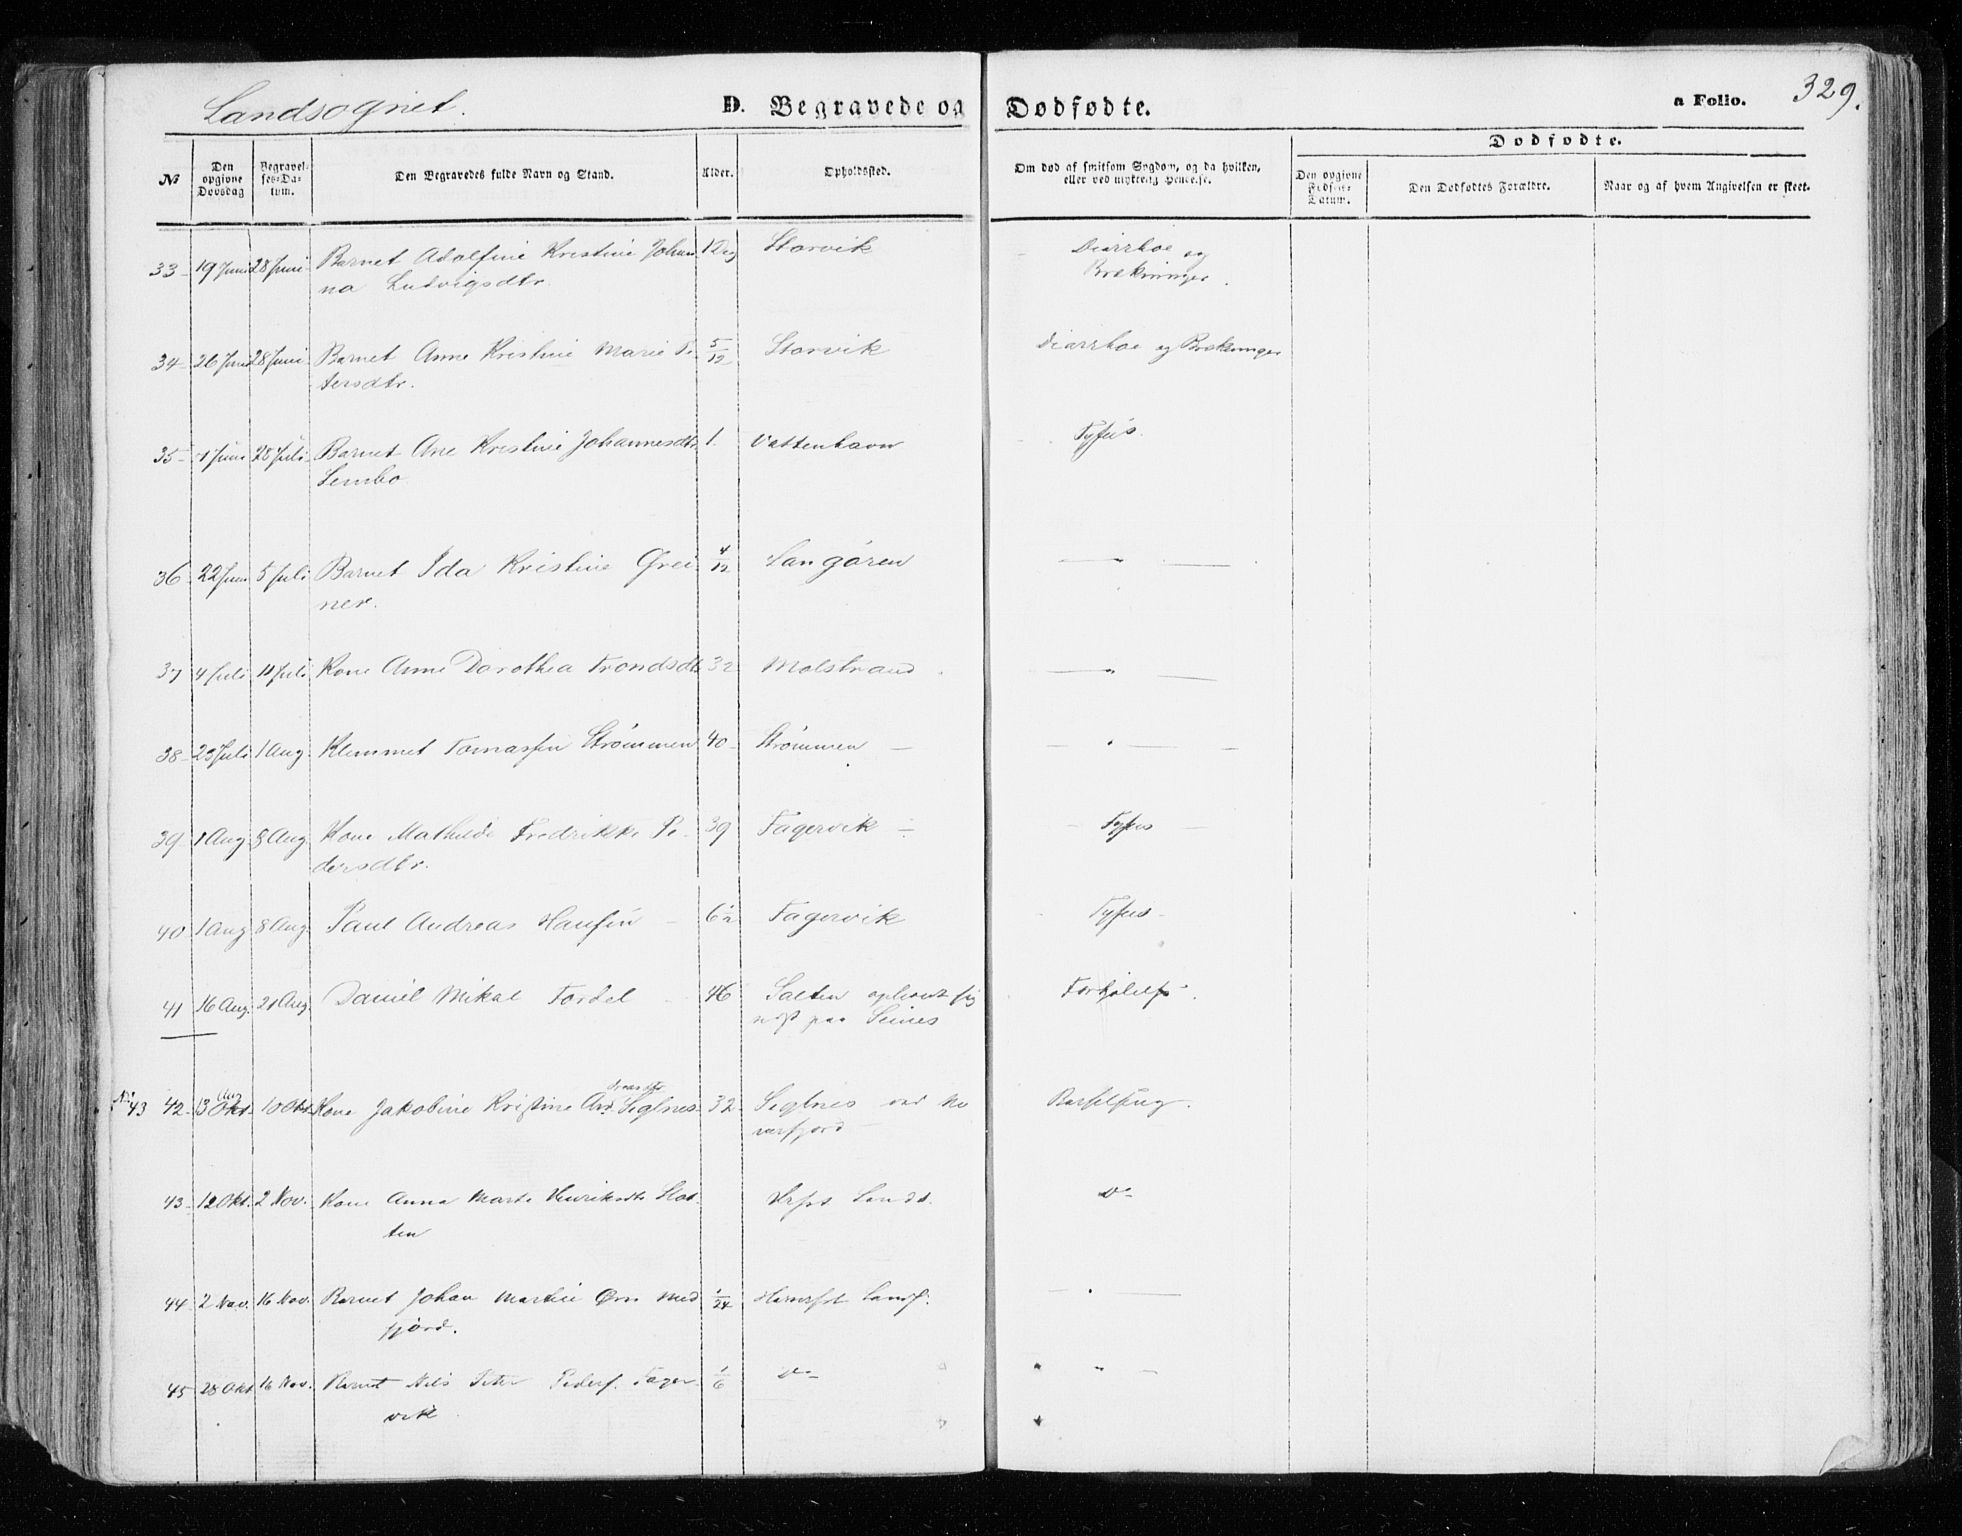 Landsognet.
D. Begravede og Dødfødte.
a Folio. 329.
№
Den opgivne Dødsdag
Begravelses-Datum.
Den Begravedes fulde Navn og Stand.
Alder.
Opholdssted.
Om død af smitsom Sygdom, og da hvilken,
eller ved ulykkelig Hændelse.
Dødfødte.
Den opgivne Fødsels-Datum.
Den Dødfødtes Forældre.
Naar og af hvem Angivelsen er skeet.
33 - 19 Juni 28 Juni Barnet Adolfine Kristine Johan- 1 Storvik Diarrhoe og
na Ludvigsdtr. Brekninger.
34 - 26 Juni 28 Juni Barnet Anne Kristine Marie Pe- 5/12 Storvik Diarrhoe og Brekninger
tersdtr.
35 - Juni 28 Juli Barnet Ane Kristine Johannesdtr 1. Vattenhavn Tyfus.
Lembo
36 22 Juni 5 Juli Barnet Ida Kristine Grei 4/12 Langøren — —
ner.
37 4 Juli 11 Juli Kone Anne Dorothea Trondsdtr 32 Molstrand — —
38 - 23 Juli 1 Aug. Klemmet Tomassen Strømmen 40 - Strømmen — — —
39 - 1 Aug 8 Aug. Kone Mathilde Fredrikke Pe- 39 Fagervik - Tyfus
dersdtr.
40 1 Aug 8 Aug. Paul Andreas Hansen 62 Fagervik Tyfus -
41 16 Aug. 21 Aug. Daniel Mikal Fordel 46 Salten opholdt sig
paa Seines
No 43 42 - 13 Okt. Aug 10 Okt. Kone Jakobine Kristine And. Seglnes 32 Seglnes ved
dreasdtr
Barselseng.
43 - 12 Okt. 2 Nov. Kone Anna Marte Henriksdtr Slot- Landd.
ten
44 - 2 Nov. 16 Nov. Barnet Johan Martin Med 1/24 Hamrfst Lands.
fjord.
45 28 Okt 16 Nov. Barnet Nils Peter Peders. Fager- 1/6 Do
vik